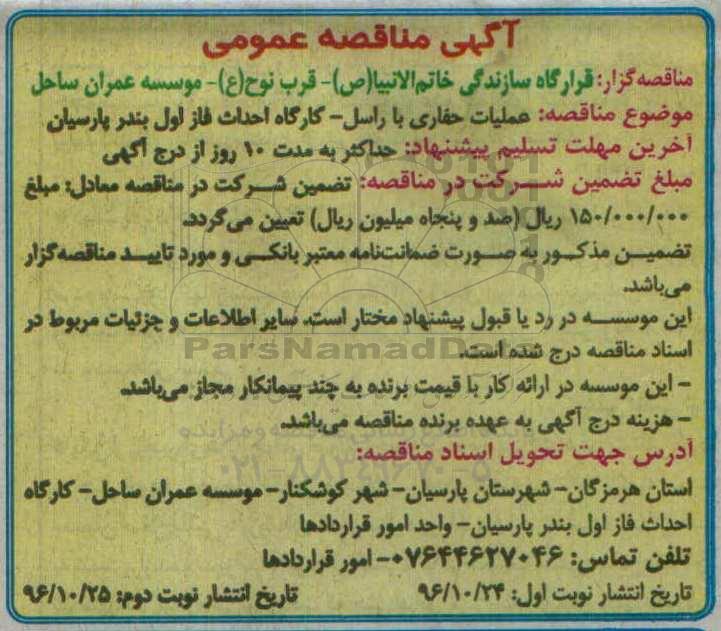 آگهی مناقصه عمومی
مناقصه‌گزار: قرارگاه سازندگی خاتم‌الانبیا(ص)- قرب نوح(ع)- موسسه عمران ساحل
موضوع مناقصه: عملیات حفاری با راسل- کارگاه احداث فاز اول بندر پارسیان
آخرین مهلت تسلیم پیشنهاد: حداکثر به مدت ۱۰ روز از درج آگهی
مبلغ تضمین شرکت در مناقصه: تضمین شرکت در مناقصه معادل: مبلغ
۱۵۰/۰۰۰/۰۰۰ ریال (صد و پنجاه میلیون ریال) تعیین می‌گردد.
تضمین مذکور به صورت ضمانت‌نامه معتبر بانکی و مورد تایید مناقصه‌گزار
می‌باشد.
این موسسه در رد یا قبول پیشنهاد مختار است. سایر اطلاعات و جزئیات مربوط در
اسناد مناقصه درج شده است.
ParsNamadData
- این موسسه در ارائه کار با قیمت برنده به چند پیمانکار مجاز می‌باشد.
- هزینه درج آگهی به عهده برنده مناقصه می‌باشد.
آدرس جهت تحویل اسناد مناقصه:
استان هرمزگان- شهرستان پارسیان- شهر کوشکنار- موسسه عمران ساحل- کارگاه
احداث فاز اول بندر پارسیان- واحد امور قراردادها
تلفن تماس: ۰۷۶۴۴۶۲۷۰۴۶- امور قراردادها
تاریخ انتشار نوبت اول: ۹۶/۱۰/۲۴ تاریخ انتشار نوبت دوم: ۹۶/۱۰/۲۵